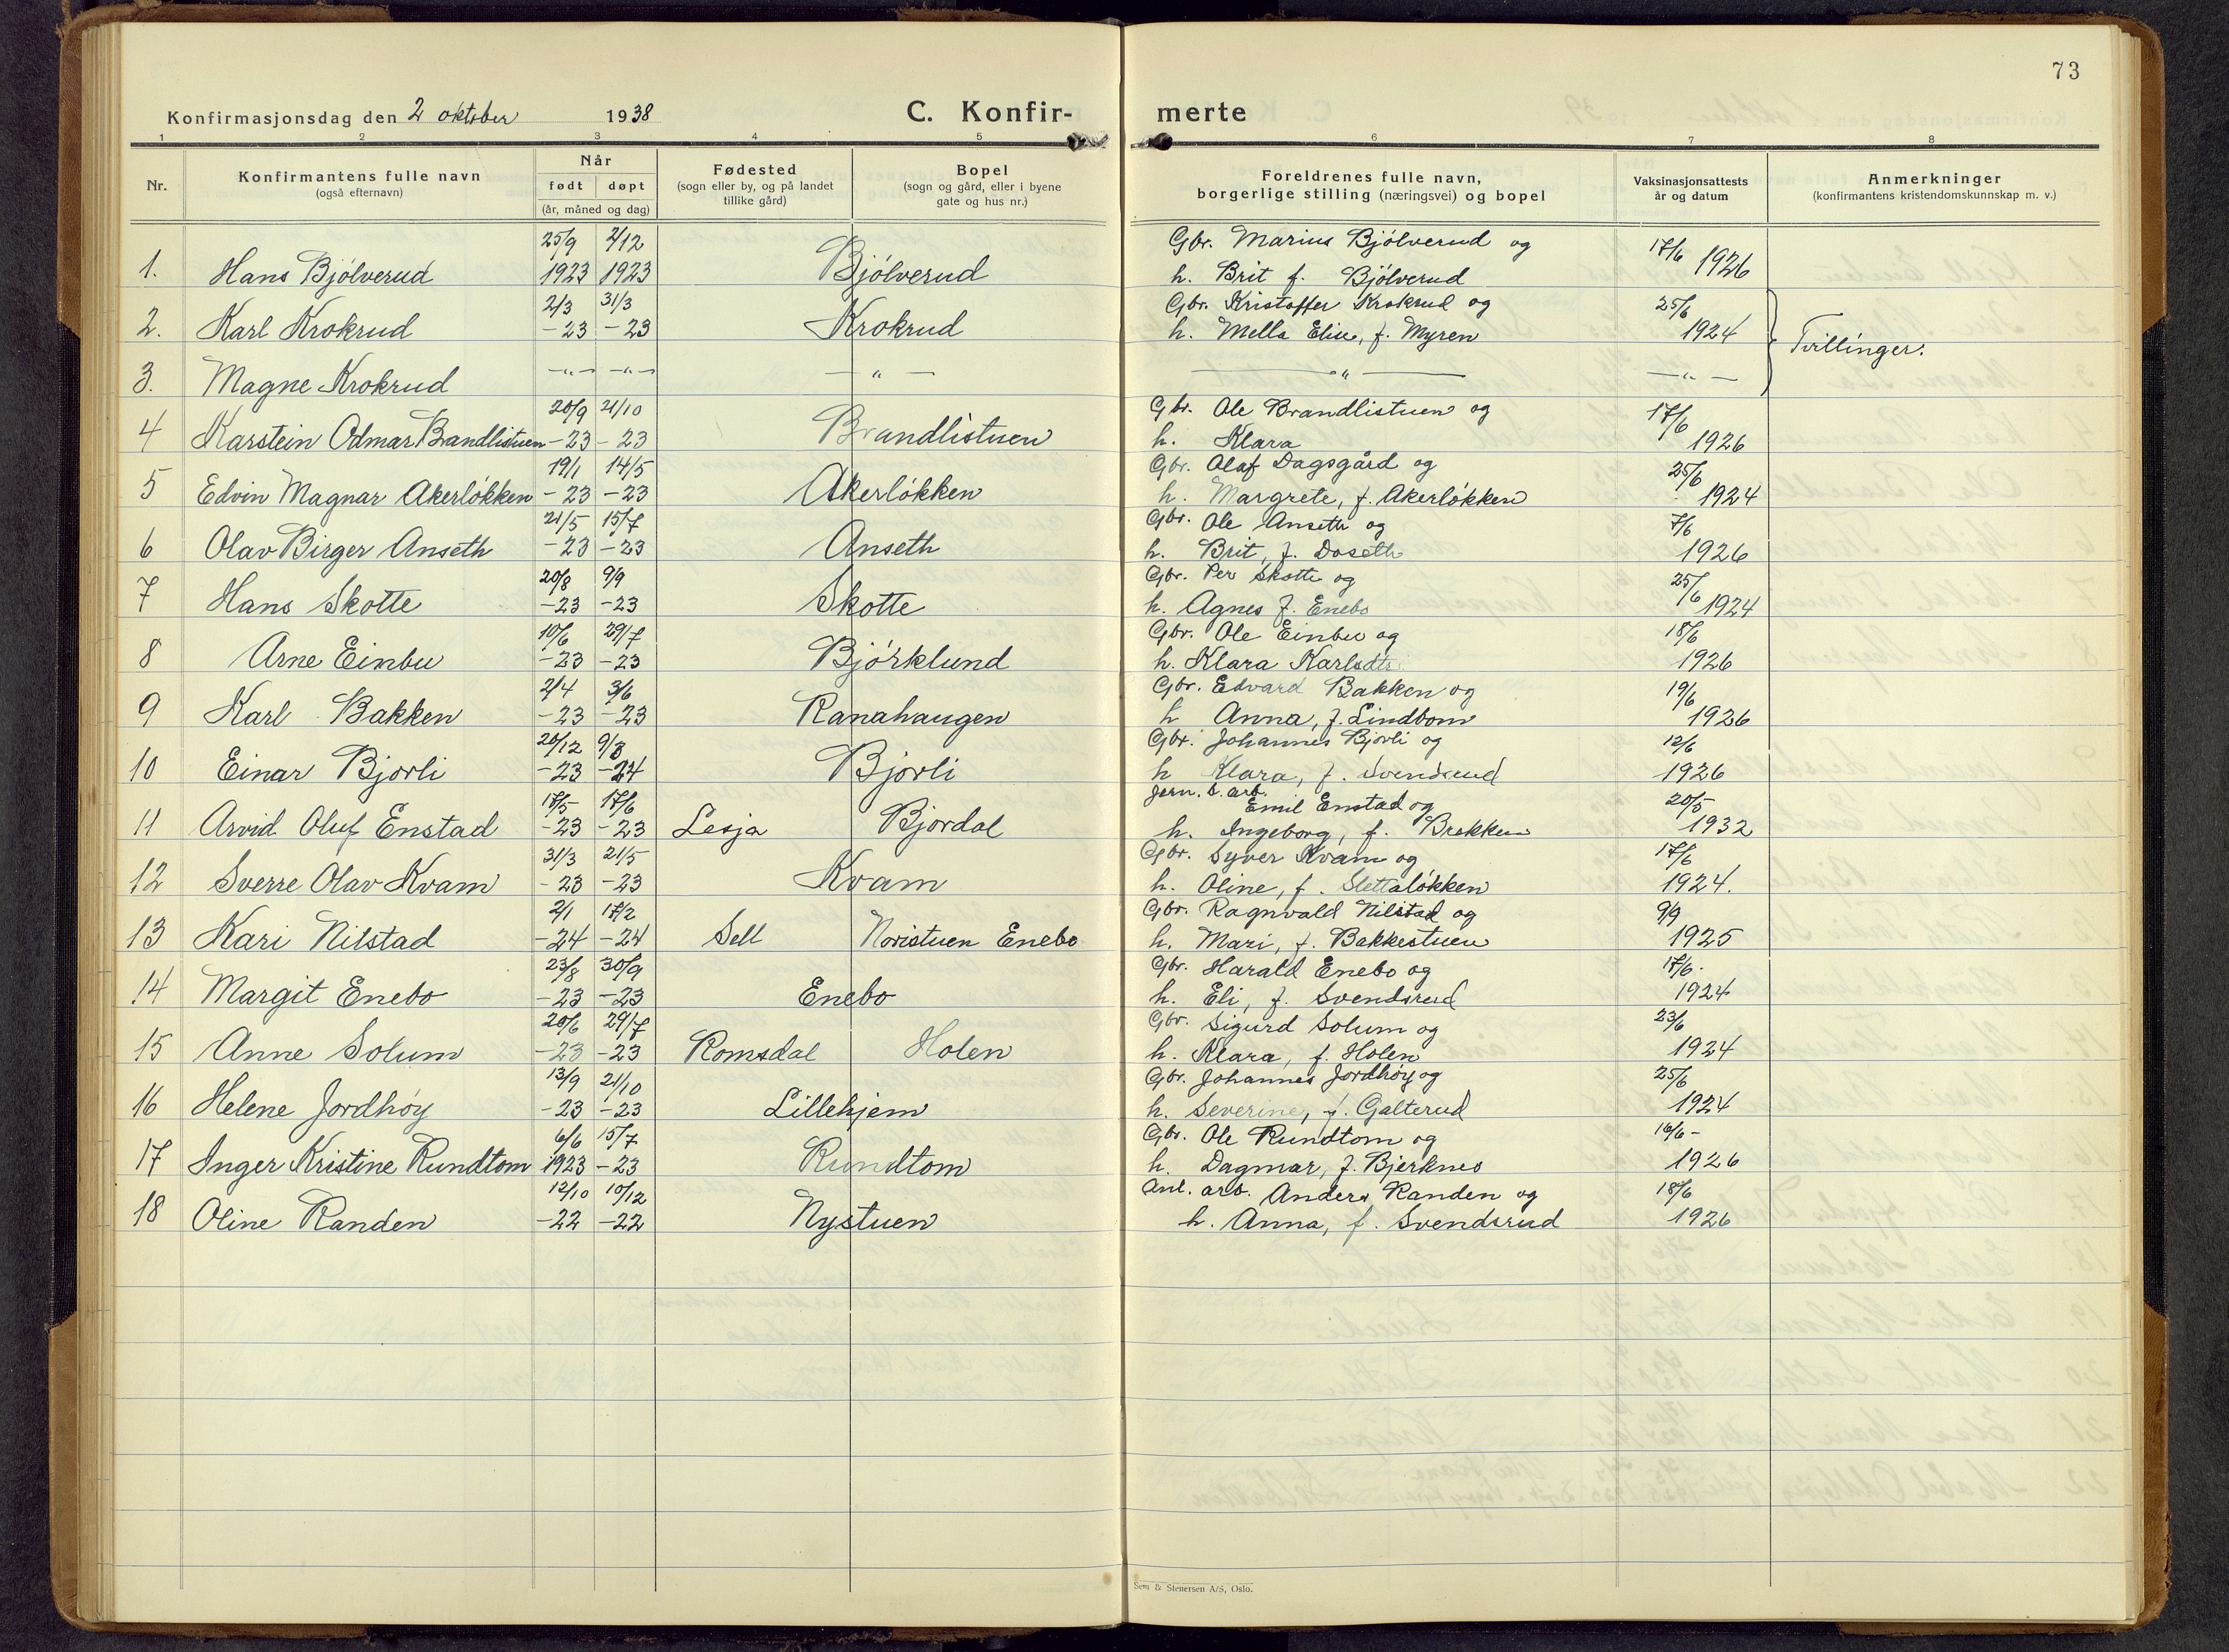 73
Konfirmasjonsdag den 2 oktober 1938 C. Konfir- merte
1 2 3 4 5 6 7 8
Nr. Konfirmantens fulle navn (også efternavn) Når født døpt (år, måned og dag) Fødested (sogn eller by, og på landet tillike gård) Bopel (sogn og gård, eller i byene gate og hus nr.) Foreldrenes fulle navn, borgerlige stilling (næringsvei) og bopel Vaksinasjonsattests år og datum Anmerkninger (konfirmantens kristendomskunnskap m. v.)
25/9 2/12 Gbr. Marius Bjølverud og 17/6 1926
1. Hans Bjølverud 1923 1923 Bjølverud h. Brit f. Bjølverud
2/3 31/3 Gbr. Kristoffer Krokrud og 25/6
2. Karl Krokrud -23 -23 Krokrud h. Mella Elise, f. Myren 1924 Tvillinger.
3. Magne Krokrud -"- -"- -"- -"- -"-
20/9 21/10 Gbr. Ole Brandlistuen og 17/6
4 Karstein Odmar Brandlistuen -23 -23 Brandlistuen h. Klara 1926
19/1 14/5 Gbr. Olaf Dagsgård og 25/6
5 Edvin Magnar Akerløkken -23 -23 Akerløkken h. Margrete, f. Akerløkken 1924
21/5 15/7 Gbr. Ole Anseth og 7/6
6 Olav Birger Anseth -23 -23 Anseth h. Brit, f. Doseth 1926
20/8 9/9 Gbr. Per Skotte og 25/6
7 Hans Skotte -23 -23 Skotte h. Agnes f. Enebo 1924
10/6 29/7 Gbr. Ole Einbu og 18/6
8 Arne Einbu -23 -23 Bjørklund h. Klara Karlsdtr. 1926
2/4 3/6 Gbr. Edvard Bakken og 19/6
9 Karl Bakken -23 -23 Ranahaugen h Anna, f. Lindbom 1926
20/12 9/3 Gbr. Johannes Bjorli og 12/6
10 Einar Bjorli -23 -24 Bjorli h Klara, f. Svendsrud 1926
17/5 17/6 Jern. b. arb. Emil Enstad og 20/5
11 Arvid Oluf Enstad -23 -23 Lesja Bjordal h. Ingeborg, f. Brekken 1932
31/3 21/5 Gbr. Syver Kvam og 17/6
12 Sverre Olav Kvam -23 -23 Kvam h. Oline, f. Slettaløkken 1924.
2/1 17/2 Gbr. Ragnvald Nilstad og 9/9
13 Kari Nilstad -24 -24 Sell Noristuen Enebo h. Mari, f. Bakkestuen 1925
23/8 30/9 Gbr. Harald Enebo og 17/6.
14 Margit Enebo -23 -23 Enebo h. Eli, f. Svendsrud 1924
20/6 29/7 Gbr. Sigurd Solum og 23/6
15 Anne Solum -23 -23 Romsdal Holen h. Klara, f. Holen 1924
13/9 21/10 Gbr. Johannes Jordhøy og 25/6
16 Helene Jordhøy -23 -23 Lillehjem h. Severine, f. Galterud 1924
6/6 15/7 Gbr. Ole Rundtom og 16/6-
17 Inger Kristine Rundtom 1923 -23 Rundtom h. Dagmar, f. Bjerknes 1926
12/10 10/12 Anl. arb. Anders Randen og 18/6
18 Oline Randen -22 -22 Nystuen h. Anna, f. Svendsrud 1926
Sem & Stenersen A/S, Oslo.